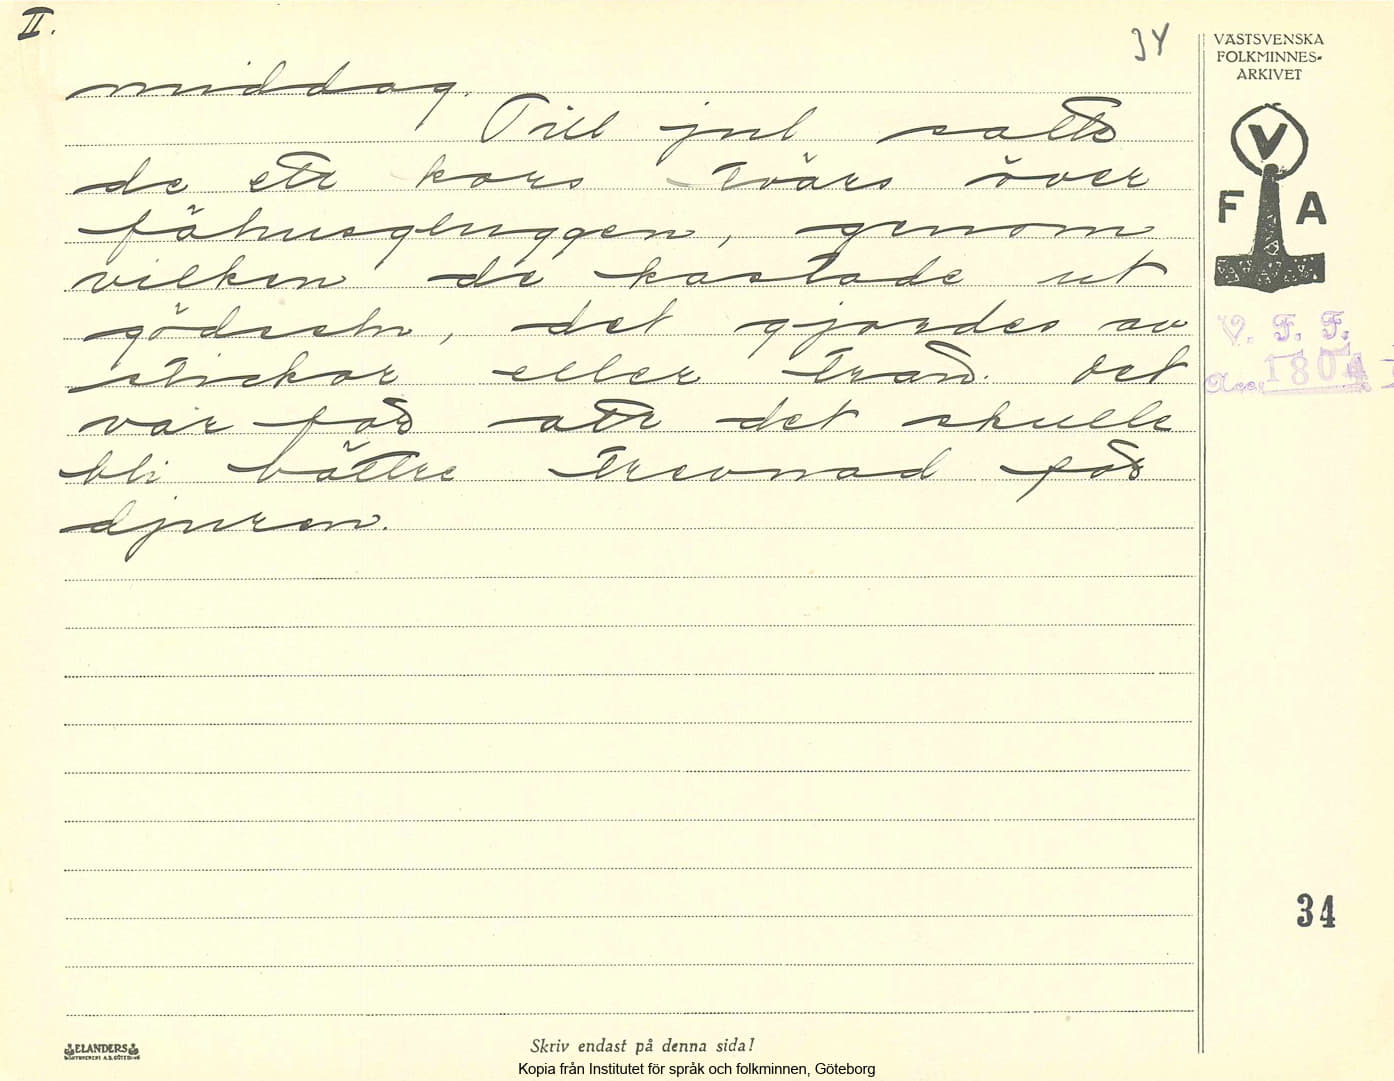 II.
34
VÄSTSVENSKA
FOLKMINNES-
ARKIVET
V
F A
V. F. F.
Acc. 1804
middag.
Till jul satte
de ett kors tvärs över
fähusgluggen, genom
vilken de kastade ut
gödseln, det gjordes av
stickor eller träd. Det
var för att det skulle
bli bättre trevnad för
djuren.
34
ELANDERS
Skriv endast på denna sida!
Kopia från Institutet för språk och folkminnen, Göteborg